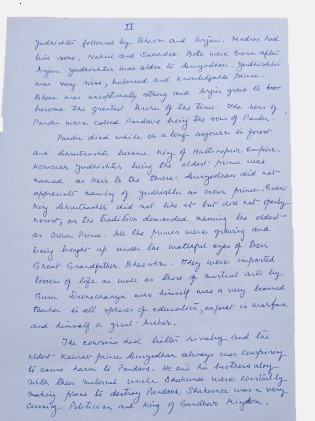 II
Yudhishtir followed by Bheem and Arjun. Madree had
two sons, Nakul and Sahadev. Both were born after
Arjun. Yudhishtir was elder to Duryodhan. Yudhishtir
was very wise, balanced and knowledgable prince.
Bheem was exceptionally strong and Arjun grew to
become the greatest Archer of the time. The sons of
Pandu were called Pandavs being the sons of Pandu.
Pandu died while on a long sojourn in forest
and Dhrutrashtr became king of Hastinapur Empire.
However Yudhishtir being the oldest prince was
named as Heir to the throne. Duryodhan did not
appreciate naming of Yudhishtir as crown prince. Even
King Dhrutrashtr did not like it but did not openly
resist, as the tradition demanded naming the oldest
as Crown Prince. All the princes were growing and
being brought up under the watchful eyes of their
Great Grandfather Bheeshm. They were imparted
lessons of life as well as those of martial arts by
Guru Dronacharya who himself was a very learned
teacher in all spheres of education, expert in warfare
and himself a great Archer.
The cousins had bitter rivalry and the
eldest Kaurav prince Duryodhan always was conspiring
to cause harm to Pandavs. He and his brothers along
with their maternal uncle Shakunee were constantly
making plans to destroy Pandavs. Shakunee was a very
cunning Politician and King of Gandhar Kingdom.